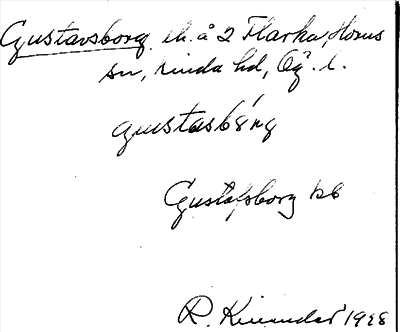 Gustavsborg, lh. å 2 Flarka, Horns
sn, Kinda hd, Ög. l.
gustasbǒ́rg
Gustafsborg kb
R. Kinander 1928